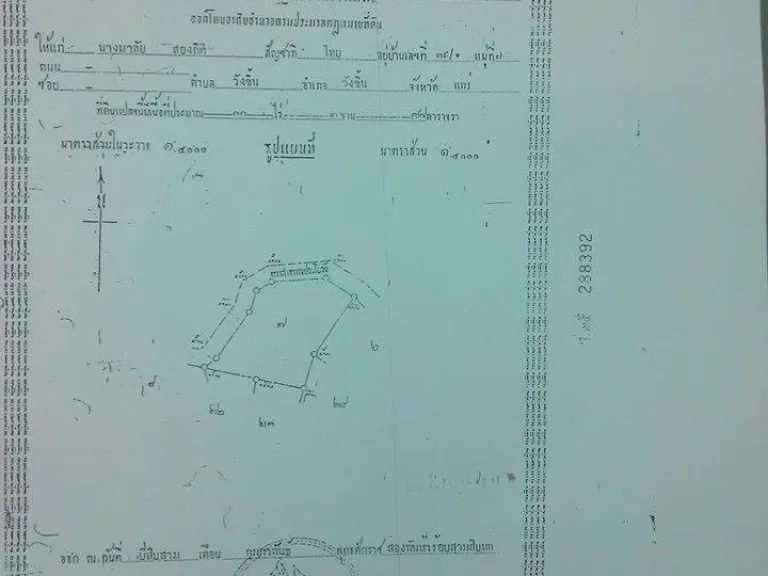 ออกโดยอาศัยอำนาจตามประมวลกฎหมายที่ดิน
ให้แก่ นางมาลัย สองกิติ สัญชาติ ไทย อยู่บ้านเลขที่ หมู่ที่
ถนน –
ซอย – ตำบล วังชิ้น อำเภอ วังชิ้น จังหวัด แพร่
ที่ดินแปลงนี้มีเนื้อที่ประมาณ ไร่ งาน ตารางวา
มาตราส่วนในระวาง ๑:๔๐๐๐ รูปแผนที่ มาตราส่วน ๑:๔๐๐๐
น
ทางสาธารณประโยชน์
๗
๒
๒๒
๒๓
๒๔
288392
ออก ณ วันที่ ยี่สิบสาม เดือน กุมภาพันธ์ พุทธศักราช สองพันห้าร้อยสามสิบหก